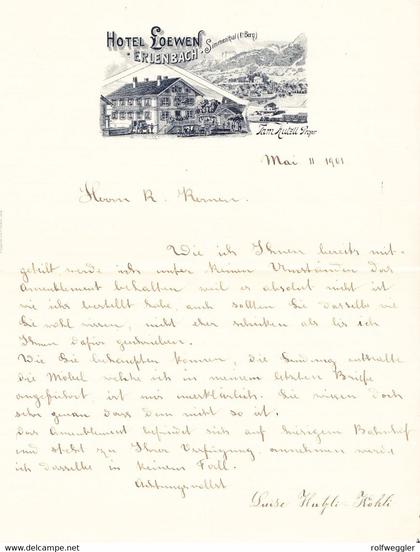 HOTEL LOEWEN
ERLENBACH
Simmenthal (Kt. Bern)
Fam. Hutzli Propr
Mai 11 1901
Herrn K. Kernen.
Wie ich Ihnen bereits mit-
geteilt werde ich unter keinen Umständen das
Ameublement behalten weil es absolut nicht ist
wie ichs bestellt habe, auch sollten Sie dasselbe wie
Sie wohl wissen, nicht eher schicken als bis ich
Ihnen dafür
Wie Sie behaupten können, die Sendung enthalte
die Möbel welche ich in meinem letzten Briefe
angeführt, ist mir unerklärlich. Sie wissen doch
sehr genau dass dem nicht so ist.
Das Ameublement befindet sich auf hiesigem Bahnhof
und steht zu Ihrer Verfügung, annehmen werde
ich dasselbe in keinem Fall.
Achtungsvollst
Luise Hutzli-Kohli
www.delcampe.net
rolfweggler